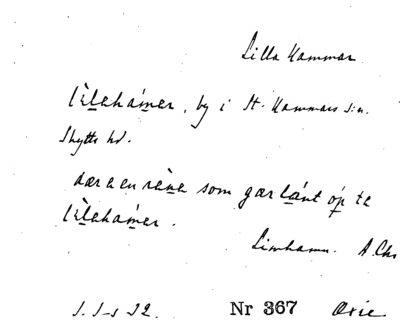 Lilla Hammar
lìlahámer, by i St. Hammars s:n.
Skytts hd.
dær a en ræna som gær lánt óp te
lìlahámer.
Limhamn. A. Chr
32. Nr 367 Oxie